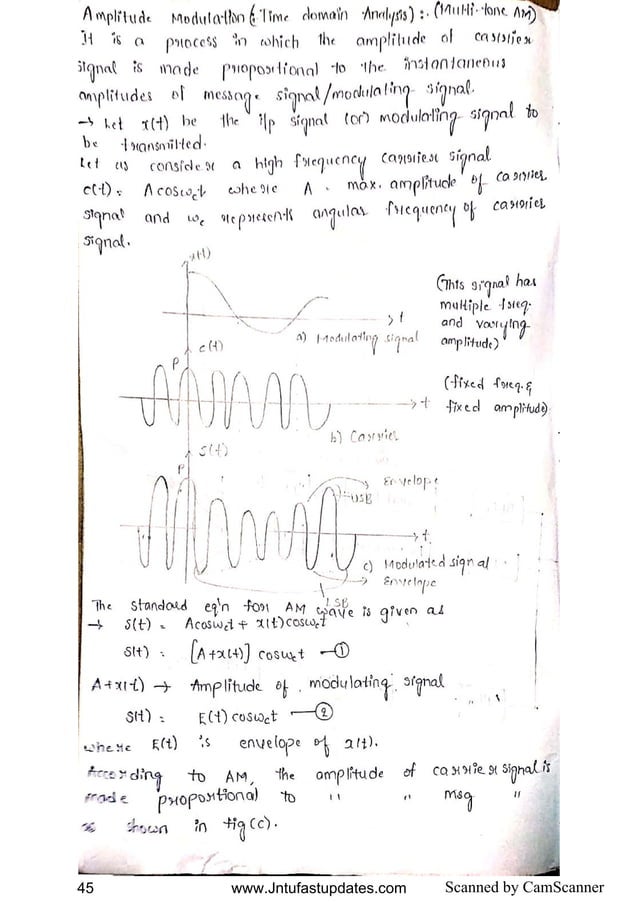 Amplitude Modulation (Time domain Analysis) :- (Multi-tone AM)
It is a process in which the amplitude of carrier
signal is made proportional to the instantaneous
amplitudes of message signal/modulating signal.
→ Let x(t) be the i/p signal (or) modulating signal to
be transmitted.
Let us consider a high frequency carrier signal
c(t) = A cosωct where A = max. amplitude of carrier
signal and ωc represents angular frequency of carrier
signal.
x(t)
(This signal has
multiple freq.
and varying
amplitude)
t
a) Modulating signal
c(t)
P
(fixed freq. &
fixed amplitude)
t
b) Carrier
s(t)
P
Envelope
USB
t
c) Modulated signal
Envelope
LSB
The standard eq'n for AM wave is given as
→ s(t) = Acosωct + x(t)cosωct
s(t) = [A+x(t)] cosωct —①
A+x(t) → Amplitude of modulating signal
s(t) = E(t)cosωct —②
where E(t) is envelope of x(t).
According to AM, the amplitude of carrier signal is
made proportional to " " msg "
shown in fig(c).
45 www.Jntufastupdates.com Scanned by CamScanner